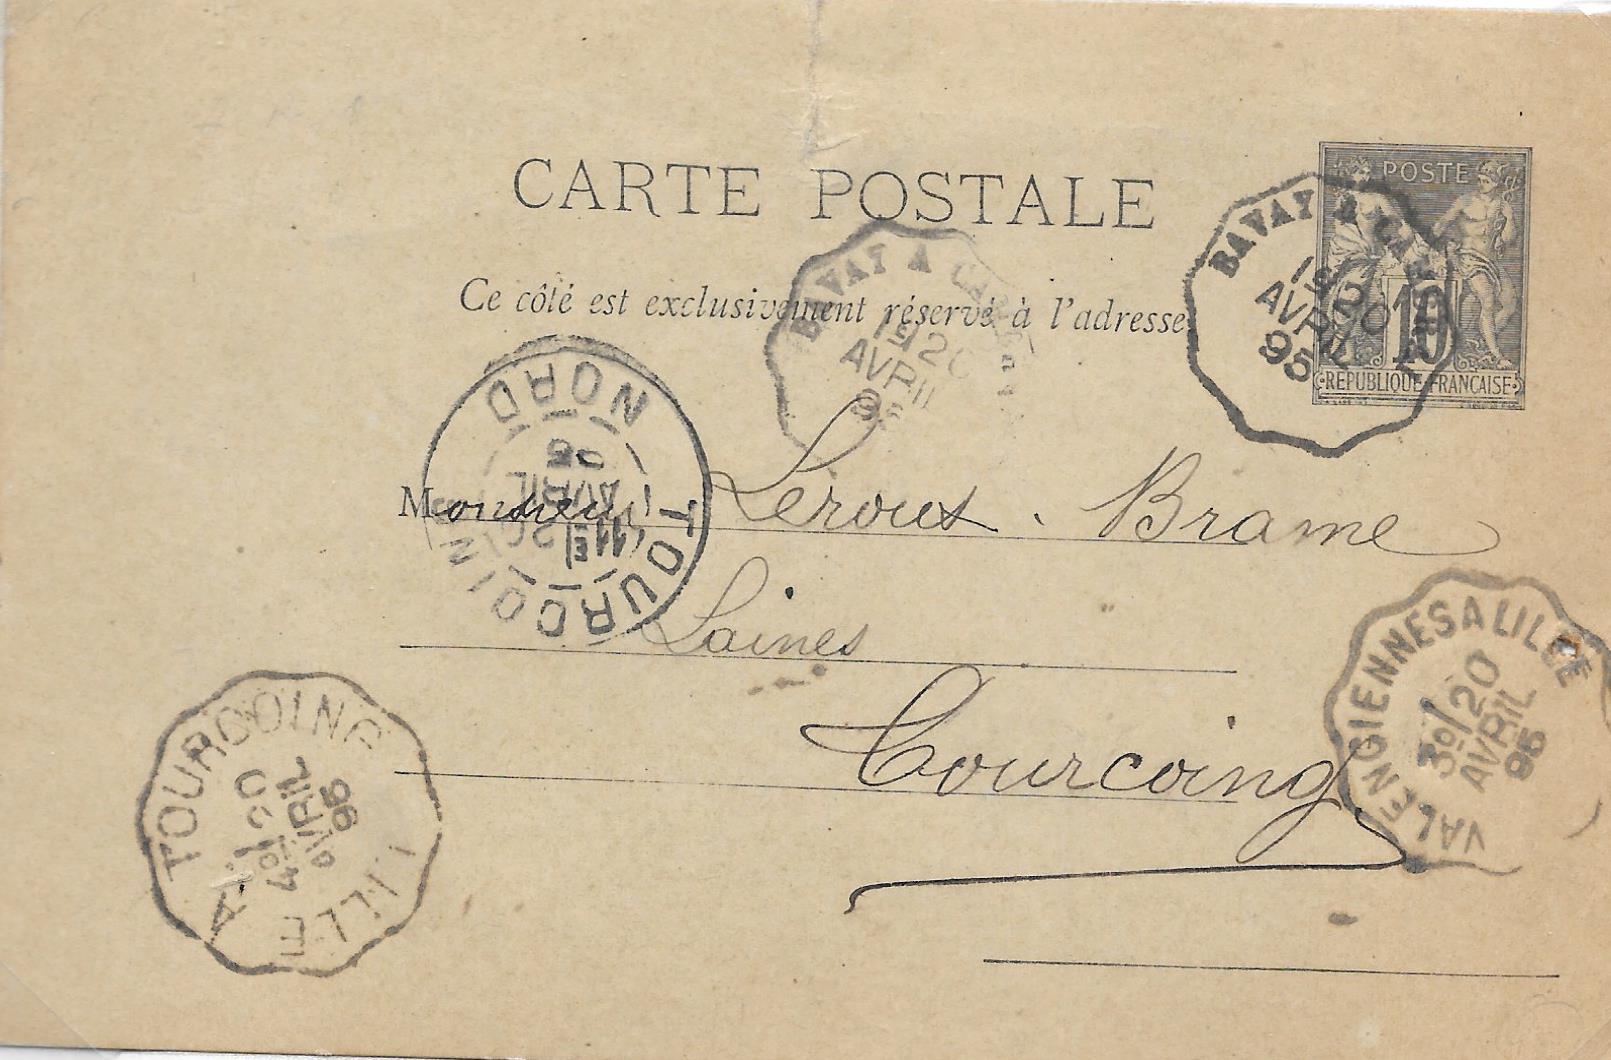 CARTE POSTALE
POSTE
10
RÉPUBLIQUE FRANÇAISE
Ce côté est exclusivement réservé à l'adresse
BAVAY A
20
AVRIL
95
BAVAY A
20
AVRIL
TOURCOING
NORD
11E/20
AVRIL
95
Monsieur Leroux. Brame
Laines
Tourcoing
VALENCIENNES A LILLE
3°/20
AVRIL
95
LILLE A TOURCOING
4°/20
AVRIL
95